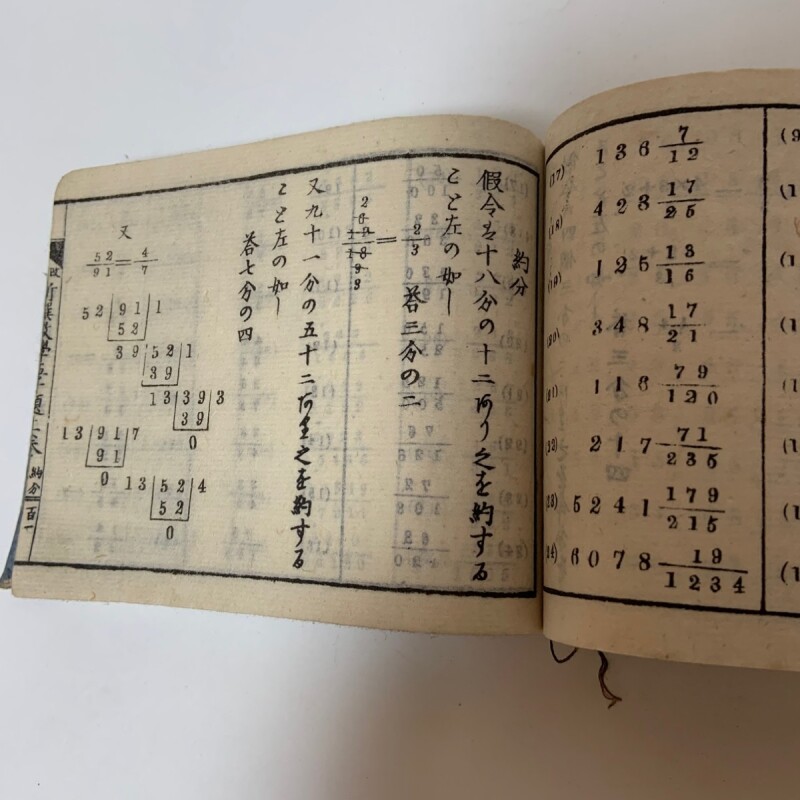 (17) 136 7/12
(18) 423 17/25
(19) 125 13/16
(20) 348 17/21
(21) 116 79/120
(22) 217 71/235
(23) 5241 179/215
(24) 6078 19/1234
約分
假令ハ十八分の十二あり之を約する
こと左の如し
= 2/3 荅三分の二
又九十一分の五十二あり之を約する
こと左の如し
荅七分の四
又
52/91 = 4/7
52 91 1
52
39 52 1
39
13 39 3
39
0
13 91 7
91
0
13 52 4
52
0
約分 百一